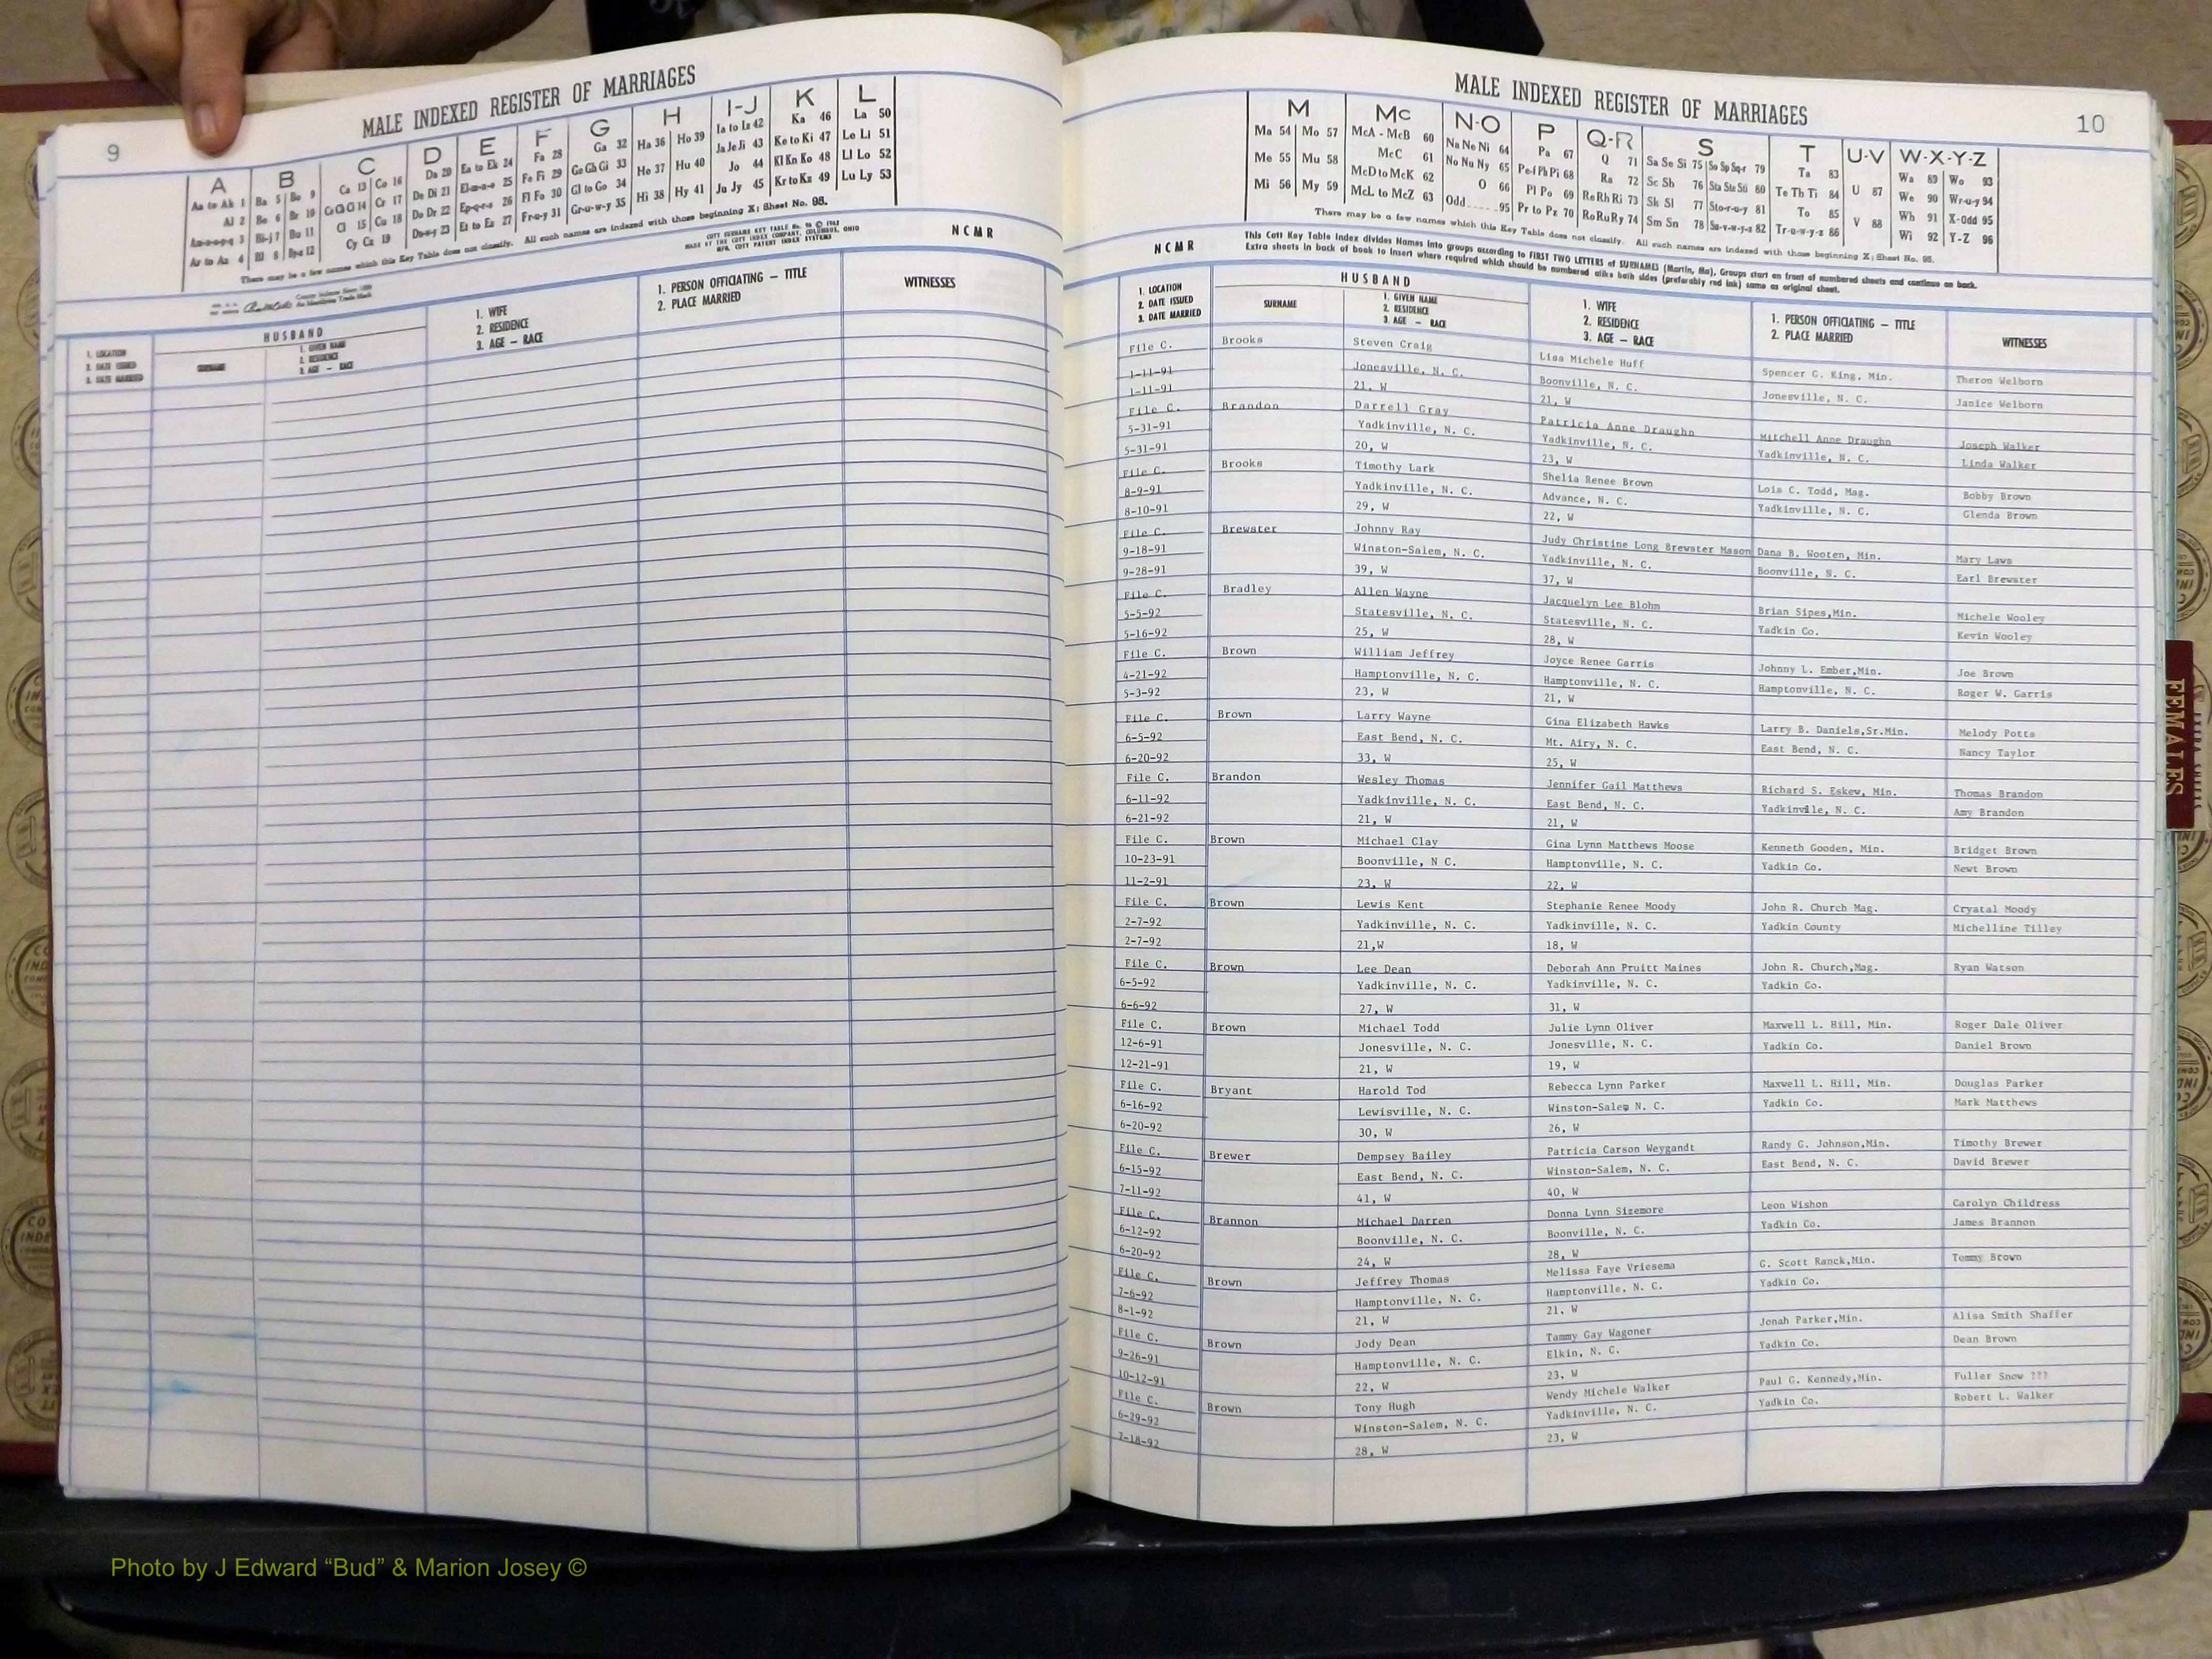 MALE INDEXED REGISTER OF MARRIAGES
9
A B C D E F G H I-J K L
Aa to Ak 1 Ba 5 Bo 9 Ca 13 Co 16 Da 20 Ea to Ek 24 Fa 28 Ga 32 Ha 36 Ho 39 Ia to Iz 42 Ka 46 La 50
Al 2 Be 6 Br 10 Ce Ch Ci 14 Cr 17 De Di 21 El-m-n-o 25 Fe Fi 29 Ge Gh Gi 33 He 37 Hu 40 Ja Je Ji 43 Ke to Ki 47 Le Li 51
Am-n-o-p-q 3 Bi-j 7 Bu 11 Cl 15 Cu 18 Do Dr 22 Ep-q-r-s 26 Fl Fo 30 Gl to Go 34 Hi 38 Hy 41 Jo 44 Kl Kn Ko 48 Ll Lo 52
Ar to Az 4 Bl 8 By-z 12 Cy Cz 19 Du-w-y 23 Et to Ez 27 Fr-u-y 31 Gr-u-w-y 35 Ju Jy 45 Kr to Kz 49 Lu Ly 53
There may be a few names which this Key Table does not classify. All such names are indexed with those beginning X; Sheet No. 95.
NCMR
HUSBAND
1. LOCATION
2. DATE ISSUED
3. DATE MARRIED
SURNAME
1. GIVEN NAME
2. RESIDENCE
3. AGE — RACE
1. WIFE
2. RESIDENCE
3. AGE — RACE
1. PERSON OFFICIATING — TITLE
2. PLACE MARRIED
WITNESSES
MALE INDEXED REGISTER OF MARRIAGES
10
M Mc N-O P Q-R S T U-V W-X-Y-Z
Ma 54 Mo 57 McA - McB 60 Na Ne Ni 64 Pa 67 Q 71 Sa Se Si 75 So Sp Sq-r 79 Ta 83 U 87 Wa 89 Wo 93
Me 55 Mu 58 McC 61 No Nu Ny 65 Pe-f Ph Pi 68 Ra 72 Sc Sh 76 Sta Ste Sti 80 Te Th Ti 84 V 88 We 90 Wr-u-y 94
Mi 56 My 59 McD to McK 62 O 66 Pl Po 69 Re Rh Ri 73 Sk Sl 77 Sto-r-u-y 81 To 85 Wh 91 X-Odd 95
McL to McZ 63 Odd 95 Pr to Pz 70 Ro Ru Ry 74 Sm Sn 78 Su-v-w-y-z 82 Tr-u-w-y-z 86 Wi 92 Y-Z 96
There may be a few names which this Key Table does not classify. All such names are indexed with those beginning X; Sheet No. 95.
NCMR
This Cott Key Table Index divides Names into groups according to FIRST TWO LETTERS of SURNAMES (Martin, Ma), Groups start on front of numbered sheets and continue on back.
Extra sheets in back of book to insert where required which should be numbered alike both sides (preferably red ink) same as original sheet.
HUSBAND
1. LOCATION
2. DATE ISSUED
3. DATE MARRIED
SURNAME
1. GIVEN NAME
2. RESIDENCE
3. AGE — RACE
1. WIFE
2. RESIDENCE
3. AGE — RACE
1. PERSON OFFICIATING — TITLE
2. PLACE MARRIED
WITNESSES
File C. Brooks Steven Craig Lisa Michele Huff Spencer G. King, Min. Theron Welborn
1-11-91 Jonesville, N. C. Boonville, N. C. Jonesville, N. C. Janice Welborn
1-11-91 21, W 21, W
File C. Brandon Darrell Gray Patricia Anne Draughn Mitchell Anne Draughn Joseph Walker
5-31-91 Yadkinville, N. C. Yadkinville, N. C. Yadkinville, N. C. Linda Walker
5-31-91 20, W 23, W
File C. Brooks Timothy Lark Shelia Renee Brown Lois C. Todd, Mag. Bobby Brown
8-9-91 Yadkinville, N. C. Advance, N. C. Yadkinville, N. C. Glenda Brown
8-10-91 29, W 22, W
File C. Brewster Johnny Ray Judy Christine Long Brewster Mason Dana B. Wooten, Min. Mary Laws
9-18-91 Winston-Salem, N. C. Yadkinville, N. C. Boonville, N. C. Earl Brewster
9-28-91 39, W 37, W
File C. Bradley Allen Wayne Jacquelyn Lee Blohm Brian Sipes,Min. Michele Wooley
5-5-92 Statesville, N. C. Statesville, N. C. Yadkin Co. Kevin Wooley
5-16-92 25, W 28, W
File C. Brown William Jeffrey Joyce Renee Garris Johnny L. Ember,Min. Joe Brown
4-21-92 Hamptonville, N. C. Hamptonville, N. C. Hamptonville, N. C. Roger W. Garris
5-3-92 23, W 21, W
File C. Brown Larry Wayne Gina Elizabeth Hawks Larry B. Daniels,Sr.Min. Melody Potts
6-5-92 East Bend, N. C. Mt. Airy, N. C. East Bend, N. C. Nancy Taylor
6-20-92 33, W 25, W
File C. Brandon Wesley Thomas Jennifer Gail Matthews Richard S. Eskew, Min. Thomas Brandon
6-11-92 Yadkinville, N. C. East Bend, N. C. Yadkinville, N. C. Amy Brandon
6-21-92 21, W 21, W
File C. Brown Michael Clay Gina Lynn Matthews Moose Kenneth Gooden, Min. Bridget Brown
10-23-91 Boonville, N C. Hamptonville, N. C. Yadkin Co. Newt Brown
11-2-91 23, W 22, W
File C. Brown Lewis Kent Stephanie Renee Moody John R. Church Mag. Crystal Moody
2-7-92 Yadkinville, N. C. Yadkinville, N. C. Yadkin County Michelline Tilley
2-7-92 21,W 18, W
File C. Brown Lee Dean Deborah Ann Pruitt Maines John R. Church,Mag. Ryan Watson
6-5-92 Yadkinville, N. C. Yadkinville, N. C. Yadkin Co.
6-6-92 27, W 31, W
File C. Brown Michael Todd Julie Lynn Oliver Maxwell L. Hill, Min. Roger Dale Oliver
12-6-91 Jonesville, N. C. Jonesville, N. C. Yadkin Co. Daniel Brown
12-21-91 21, W 19, W
File C. Bryant Harold Tod Rebecca Lynn Parker Maxwell L. Hill, Min. Douglas Parker
6-16-92 Lewisville, N. C. Winston-Salem N. C. Yadkin Co. Mark Matthews
6-20-92 30, W 26, W
File C. Brewer Dempsey Bailey Patricia Carson Weygandt Randy G. Johnson,Min. Timothy Brewer
6-15-92 East Bend, N. C. Winston-Salem, N. C. East Bend, N. C. David Brewer
7-11-92 41, W 40, W
File C. Brannon Michael Darren Donna Lynn Sizemore Leon Wishon Carolyn Childress
6-12-92 Boonville, N. C. Boonville, N. C. Yadkin Co. James Brannon
6-20-92 24, W 28, W
File C. Brown Jeffrey Thomas Melissa Faye Vriesema G. Scott Ranck,Min. Tommy Brown
7-6-92 Hamptonville, N. C. Hamptonville, N. C. Yadkin Co.
8-1-92 21, W 21, W
File C. Brown Jody Dean Tammy Gay Wagoner Jonah Parker,Min. Alisa Smith Shaffer
9-26-91 Hamptonville, N. C. Elkin, N. C. Yadkin Co. Dean Brown
10-12-91 22, W 23, W
File C. Brown Tony Hugh Wendy Michele Walker Paul G. Kennedy,Min. Fuller Snow ???
6-29-92 Winston-Salem, N. C. Yadkinville, N. C. Yadkin Co. Robert L. Walker
7-18-92 28, W 23, W
FEMALES
Photo by J Edward “Bud” & Marion Josey ©